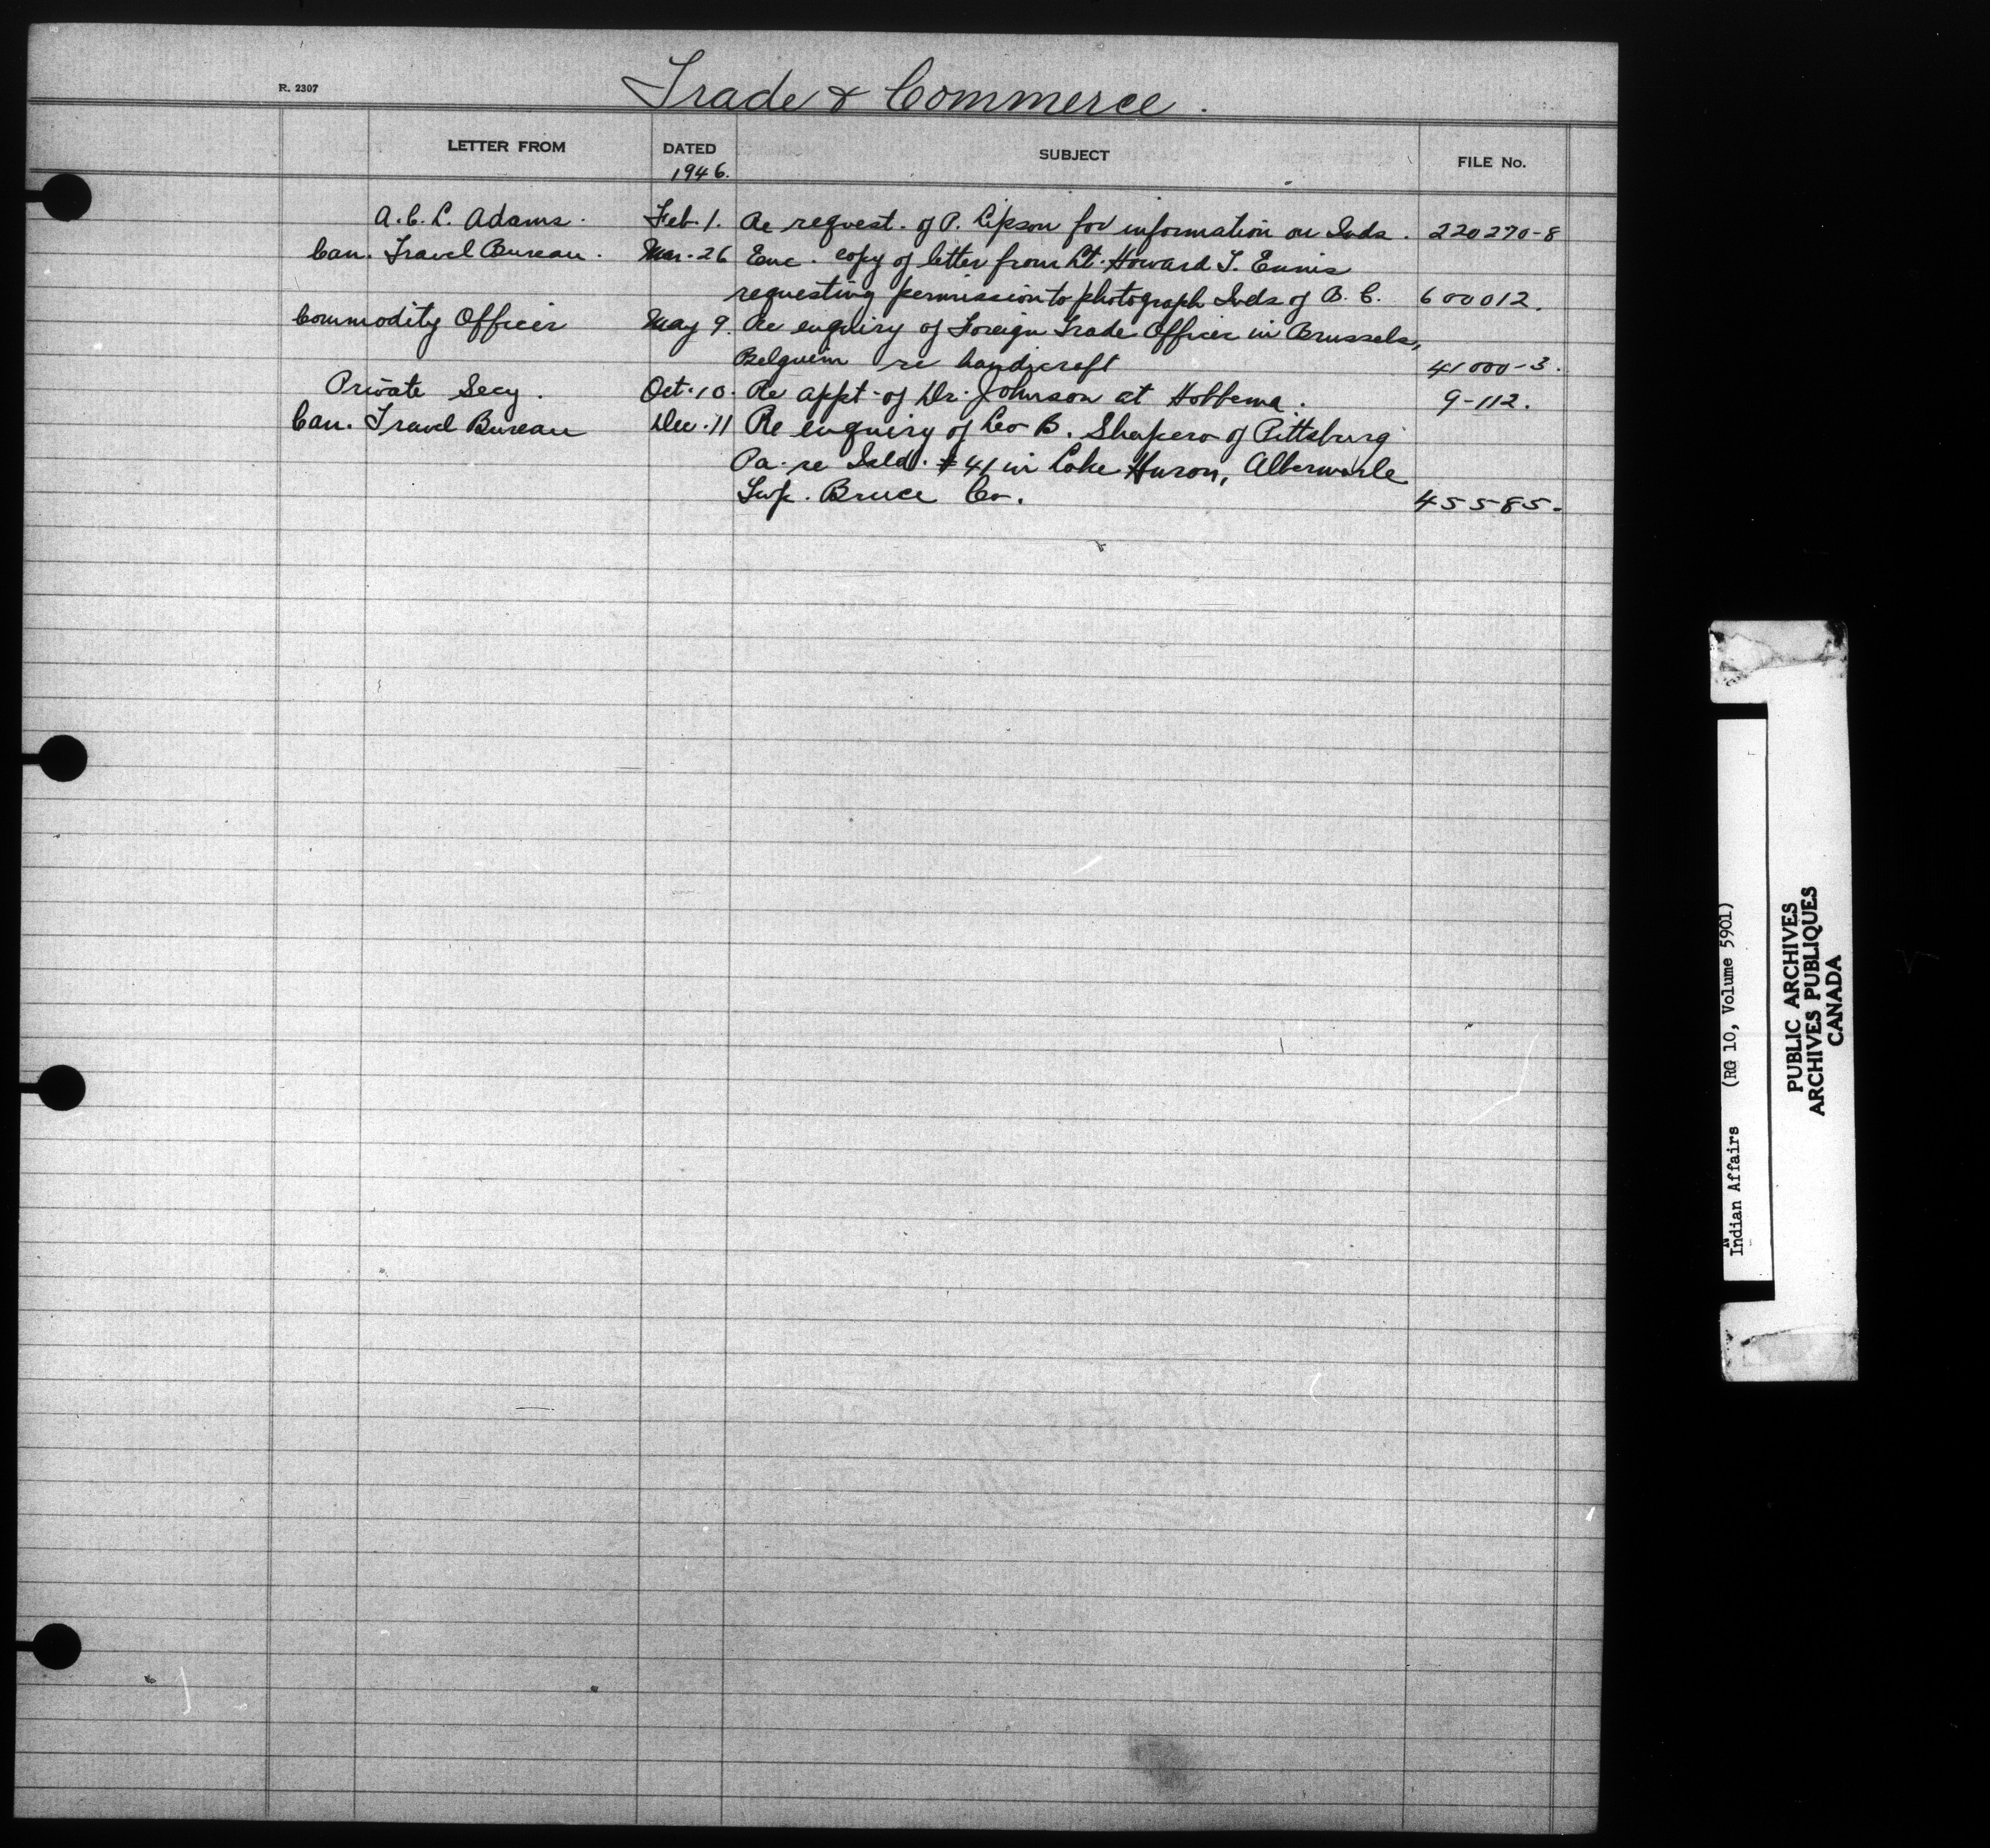 R. 2307
Trade & Commerce.
LETTER FROM DATED SUBJECT FILE No.
1946.
A.C.L. Adams. Feb. 1. Re request. of P. Lipson for information on Inds. 220270-8
Can. Travel Bureau. Mar. 26 Enc. copy of letter from Lt. Howard T. Ennis
requesting permission to photograph Inds of B.C. 600012.
Commodity Officer May 9. Re enquiry of Foreign Trade Officer in Brussels,
Belguim re handicraft 41000-3.
Private Secy. Oct. 10. Re appt. of Dr. Johnson at Hobbema. 9-112.
Can. Travel Bureau Dec. 11 Re enquiry of Leo B. Shapero of Pittsburg
Pa. re Isld. #41 in Lake Huron, Albermarle
Twp. Bruce Co. 45585.
Indian Affairs (RG 10, Volume 5901)
PUBLIC ARCHIVES
ARCHIVES PUBLIQUES
CANADA